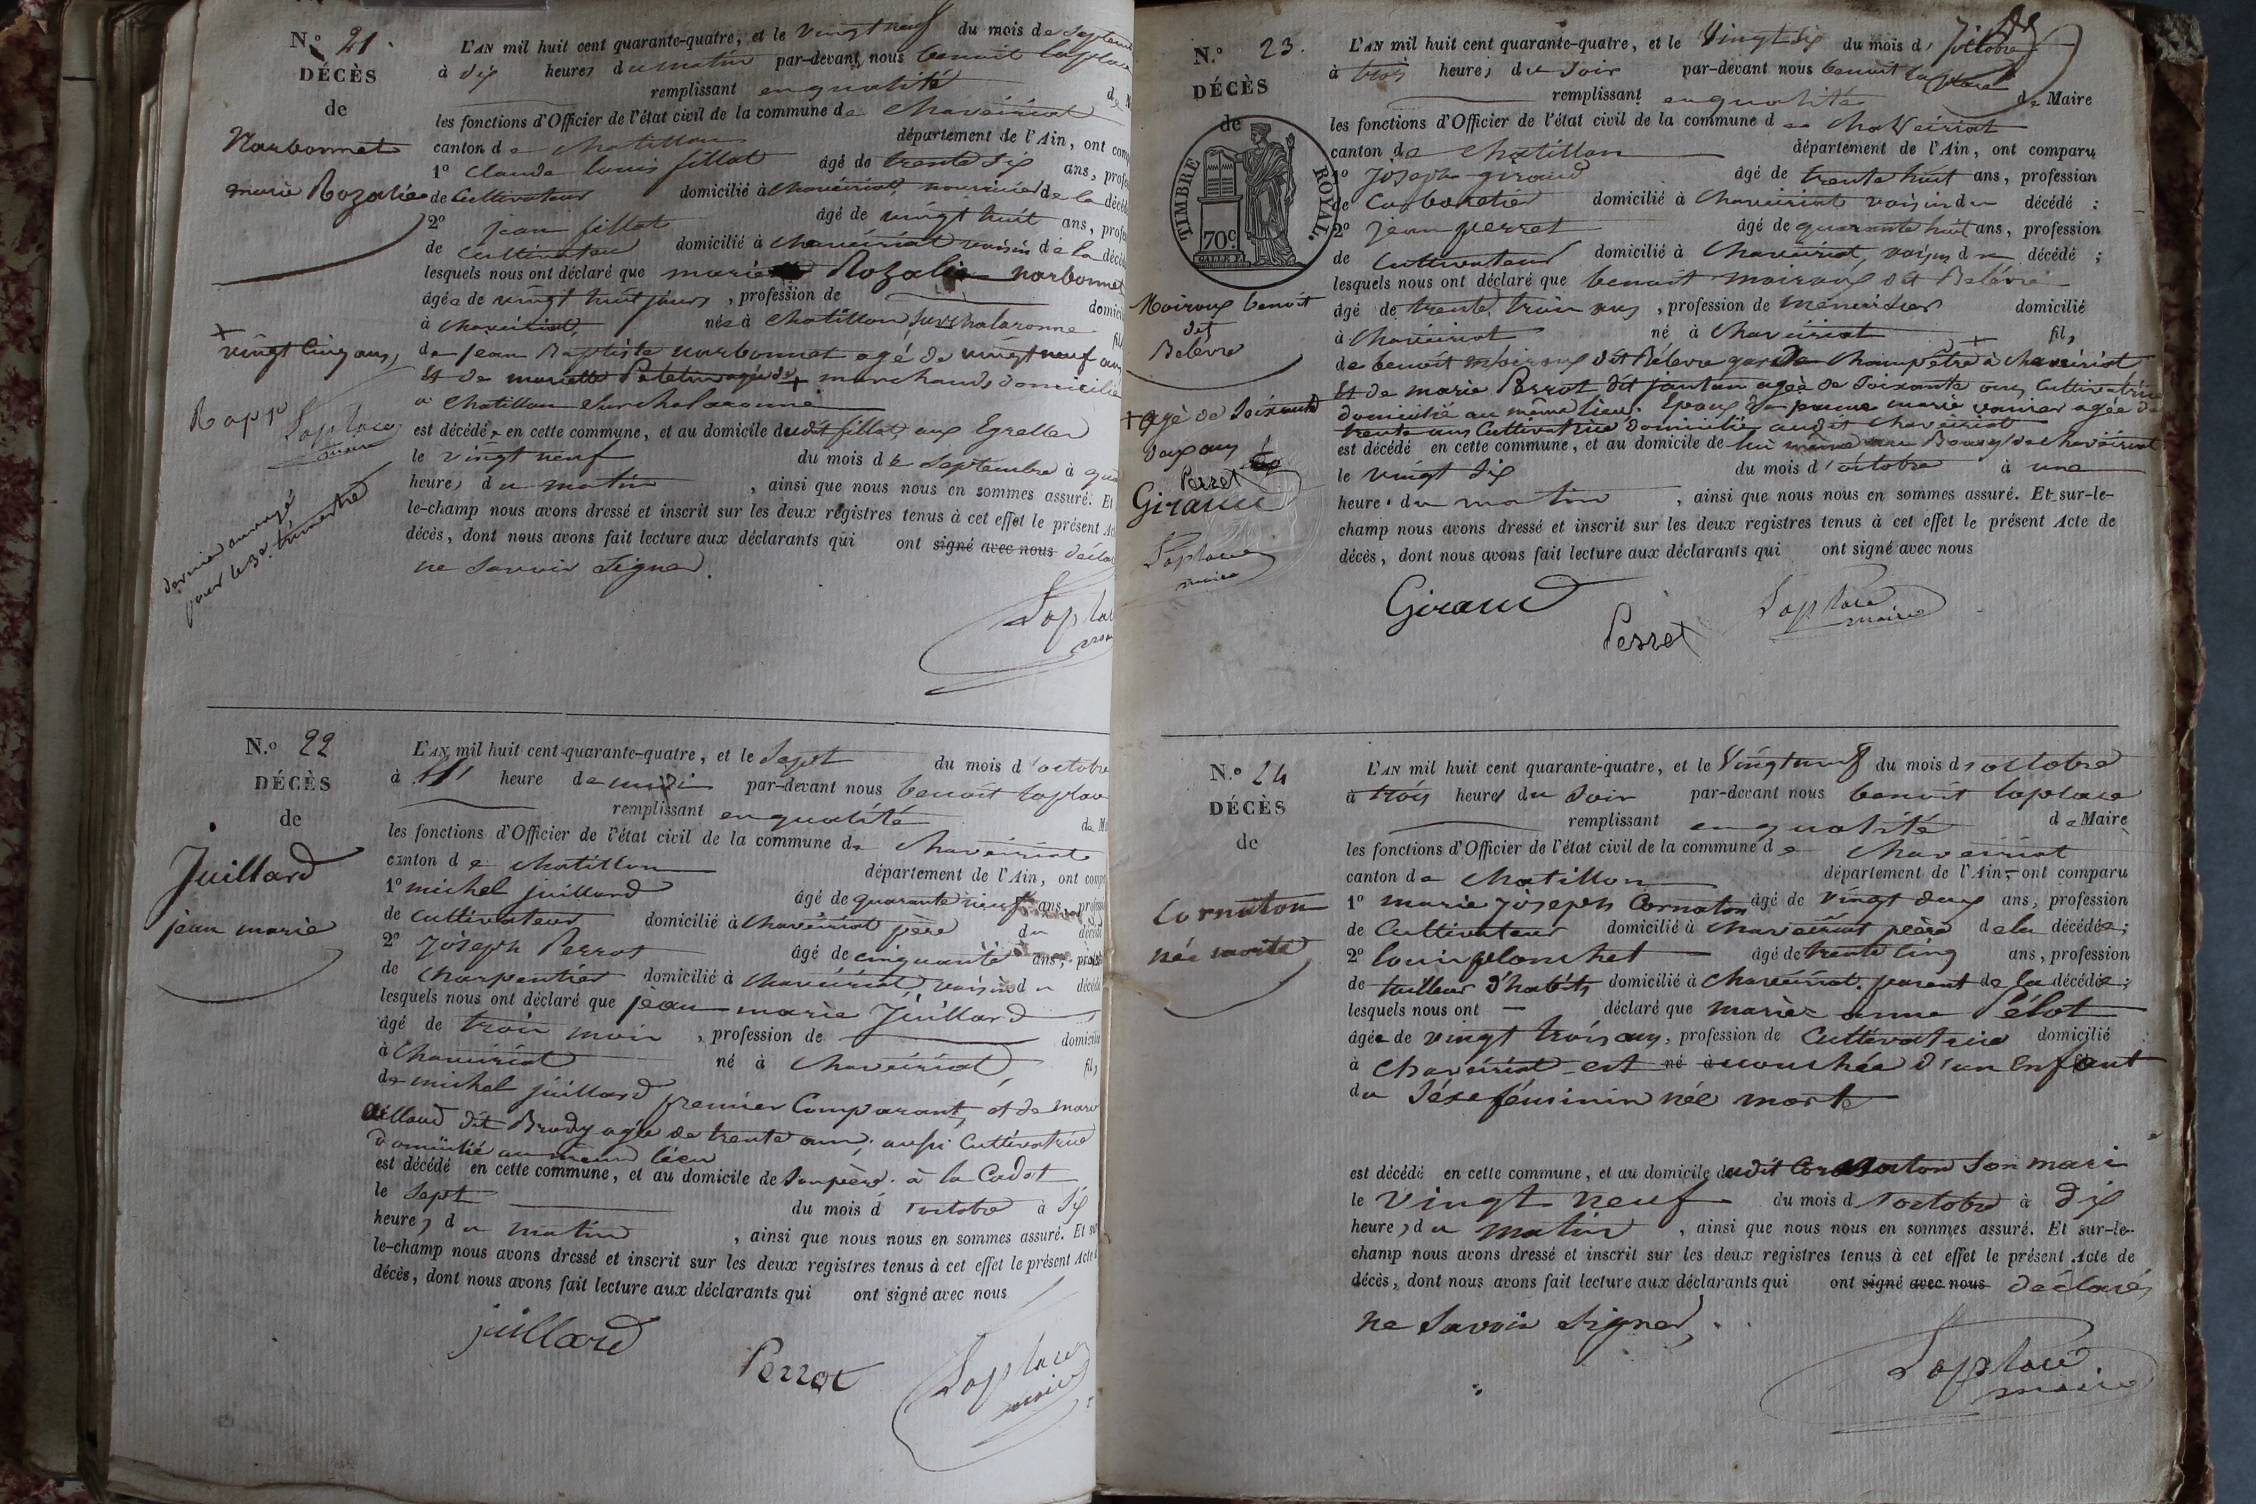 N.º 21.
DÉCÈS
de
Narbonnet
marie Rozalie
+
vingt cinq ans,
Rapp
Laplace
maire
dernier
pour le 3e. trimestre
L'AN mil huit cent quarante-quatre, et le vingt neuf du mois de septem
à dix heures du matin par-devant nous benoit laplace
remplissant en qualité de M
les fonctions d'Officier de l'état civil de la commune de chaveiriat
canton de chatillon département de l'Ain, ont comp
1º claude louis fillat âgé de trente six ans, profe
de Cultivateur domicilié à chaveiriat, nourricier de la décéd
2º jean fillat âgé de vingt huit ans, profes
de Cultivateur domicilié à chaveiriat voisin de la décéd
lesquels nous ont déclaré que marie Rozalie narbonnet
âgée de vingt huit jours, profession de domici
à chaveiriat, née à chatillon sur chalaronne fil
de jean Baptiste narbonnet agé de vingt neuf ans
Et de mariette agée de + marchands domicilié
a chatillon sur chalaronne
est décédée en cette commune, et au domicile dudit fillat, aux Egrelles
le vingt neuf du mois de septembre à qua
heures du matin, ainsi que nous nous en sommes assuré. Et
le-champ nous avons dressé et inscrit sur les deux registres tenus à cet effet le présent Ac
décès, dont nous avons fait lecture aux déclarants qui ont signé avec nous décla
ne savoir signer.
Laplace
maire
N.º 22
DÉCÈS
de
Juillard
jean marie
L'AN mil huit cent quarante-quatre, et le sept du mois d'octobre
à heure de midi par-devant nous benoit laplace
remplissant en qualité de M
les fonctions d'Officier de l'état civil de la commune de chaveiriat
canton de chatillon département de l'Ain, ont comp
1º michel juillard âgé de quarante neuf ans, profess
de cultivateur domicilié à chaveiriat père du décéd
2º joseph Perrot âgé de cinquante ans, profes
de charpentier domicilié à chaveiriat, voisin du décédé
lesquels nous ont déclaré que jean marie Juillard
âgé de trois mois, profession de domicili
à chaveiriat né à chaveiriat, fils
de michel juillard premier Comparant, et de marie
dit Brady agée de trente ans, aussi Cultivatrice
domicilié au même lieu
est décédé en cette commune, et au domicile de son père à la Cadot
le sept du mois d'octobre à six
heures du matin, ainsi que nous nous en sommes assuré. Et su
le-champ nous avons dressé et inscrit sur les deux registres tenus à cet effet le présent Acte
décès, dont nous avons fait lecture aux déclarants qui ont signé avec nous
juillard
Perrot
Laplace
maire
N.º 23.
DÉCÈS
de
TIMBRE ROYAL.
70c
Moiroux benoit
dit
Belévre
+ agé de soixante
deux ans
Perret
Giraud
Laplace
maire
L'AN mil huit cent quarante-quatre, et le vingt six du mois d'octobre
à trois heures du soir par-devant nous benoit laplace
remplissant en qualité de Maire
les fonctions d'Officier de l'état civil de la commune de chaveiriat
canton de chatillon département de l'Ain, ont comparu
1º joseph giraud âgé de trente huit ans, profession
de Cabaretier domicilié à chaveiriat voisin du décédé;
2º jean perret âgé de quarante huit ans, profession
de Cultivateur domicilié à chaveiriat, voisin du décédé;
lesquels nous ont déclaré que benoit moiroux dit Belévre
âgé de trente trois ans, profession de menuisier domicilié
à chaveiriat né à chaveiriat fils
de benoit moiroux dit Bélevre garde champêtre + à chaveiriat
Et de marie Perrot dit jantan agée de soixante ans Cultivatrice
domicilié au même lieu. Epoux de marie agée de
trente ans Cultivatrice domicilié audit chaveiriat
est décédé en cette commune, et au domicile de lui même au Bourg de chaveiriat
le vingt six du mois d'octobre à une
heure du matin, ainsi que nous nous en sommes assuré. Et sur-le-
champ nous avons dressé et inscrit sur les deux registres tenus à cet effet le présent Acte de
décès, dont nous avons fait lecture aux déclarants qui ont signé avec nous
Giraud
Perret
Laplace
maire
N.º 24
DÉCÈS
de
Cornaton
née morte
L'AN mil huit cent quarante-quatre, et le vingt neuf du mois d'octobre
à trois heures du soir par-devant nous benoit laplace
remplissant en qualité de Maire
les fonctions d'Officier de l'état civil de la commune de chaveiriat
canton de chatillon département de l'Ain, ont comparu
1º marie joseph Cornaton âgé de vingt deux ans, profession
de Cultivateur domicilié à chaveiriat père de la décédée;
2º louis planchet âgé de trente cinq ans, profession
de tailleur d'habits domicilié à chaveiriat, parent de la décédée;
lesquels nous ont déclaré que marie anne Pélot
âgée de vingt trois ans, profession de Cultivatrice domicilié
à chaveiriat est né à accouchée d'un Enfant
du séxe féminin née morte
est décédé en cette commune, et au domicile dudit Cornaton son mari
le vingt neuf du mois d'octobre à dix
heures du matin, ainsi que nous nous en sommes assuré. Et sur-le-
champ nous avons dressé et inscrit sur les deux registres tenus à cet effet le présent Acte de
décès, dont nous avons fait lecture aux déclarants qui ont signé avec nous déclarés
ne savoir signer,
Laplace
maire